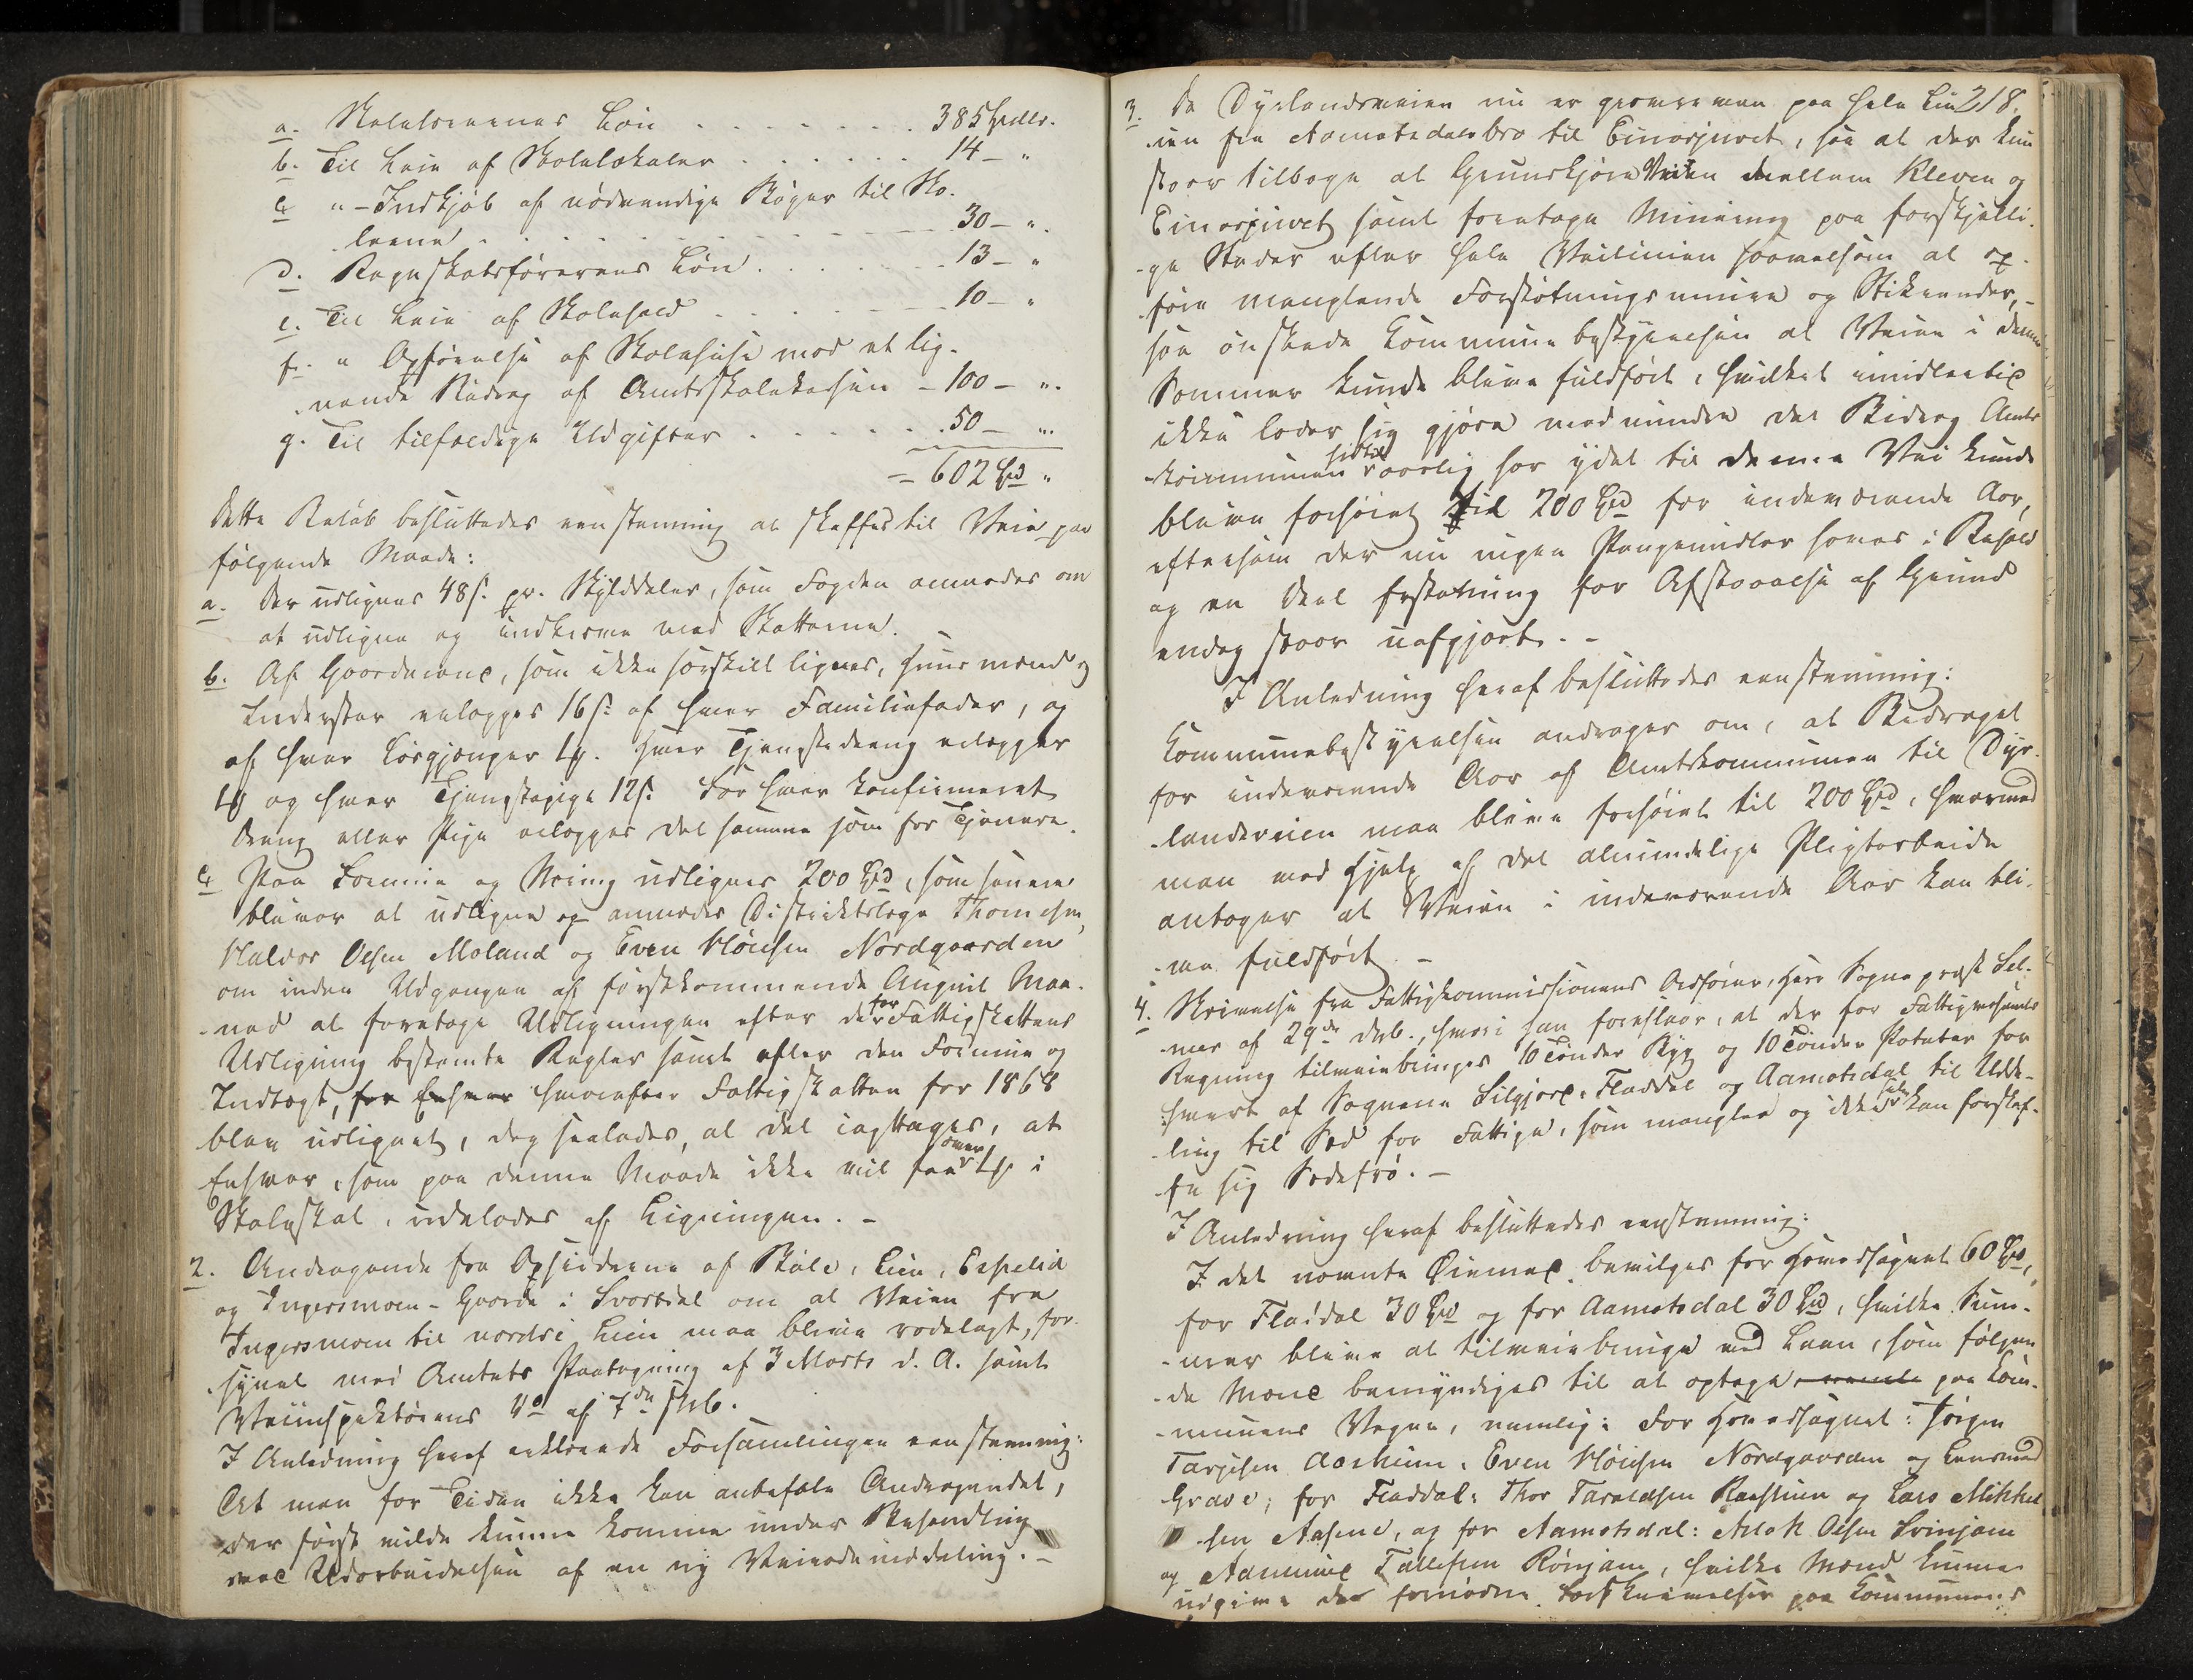 a. Skolelærernes Løn . . . . . . . 385 Spdlr.
b. Til Leie af Skolelokaler . . . . . . 14 – "
c. " – Indkjøb af nødvendige Bøger til Sko-
lerne . . . . . . . . . 30 – ".
d. Regnskabsførerens Løn . . . . . 13 – "
e. Til Leie af Skolehold . . . . 10 – "
f. " Opførelse af Skolehuse mod et lig-
nende Bidrag af Amtsskolekassen – 100 – ".
g. Til tilfældige Udgifter . . . . . . 50 – "
= 602 Spd "
Dette Beløb besluttedes eenstemmig at skaffes til Veie paa
følgende Maade:
a. Der udlignes 48 s. pr. Skylddaler, som Fogden anmodes om
at udligne og indkræve med Skatterne.
b. Af Gaardmænd, som ikke særskilt lignes, Huusmænd og
Inderster erlægges 16 s. af hver Familiefader, og
af hver Løsgjænger . Hver Tjenestedreng erlægger
og hver Tjenestepige 12 s. For hver konfirmeret
Dreng eller Pige erlægges det samme som for Tjenere.
c. Paa Formue og Næring udlignes 200 Spd, som
bliver at udligne og anmodes Distriktslæge Thomesen,
Haldor Olsen Moland og Even Høiesen Nordgaarden
om inden Udgangen af førstkommende August Maa-
ned at foretage Udligningen efter de for Fattigskattens
Udligning bestemte Regler samt efter den Formue og
Indtægt, for Enhver hvorefter Fattigskatten for 1868
blev udlignet, dog saaledes, at det iagttages, at
Enhver, som paa denne Maade ikke vil faa over i
Skoleskat, udelades af Ligningen. –
2. Andragende fra Opsidderne af Bøle, Lien, Espelid
og Ingersmoen – Gaarde i Svartdal om at Veien fra
Ingersmoen til nordre Lien maa blive rodelagt, for-
synet med Amtets Paategning af 3 Marts d. A. samt
Veiinspektørens do af 7de s. M.
I Anledning heraf erklærede Forsamlingen eenstemmig:
At man for Tiden ikke kan anbefale Andragendet,
der først vilde kunne komme under Behandling
ved Udarbeidelsen af en ny Veirodeinddeling. –
218.
3. Da Dyrlandsveien nu er gjennem paa hele Lin-
ien fra Aamotsdalsbro til Einarsjuvet, saa at der kun
staar tilbage at Veien mellem Kleven og
Einarsjuvet samt foretage Minering paa forskjelli-
ge Steder efter hele Veilinien saavelsom at op-
føre manglende Forstøtningsmure og Stikrender, –
saa ønskede Kommunebestyrelsen at Veien i denne
Sommer kunde blive fuldført, hvilket imidlertid
ikke lader sig gjøre medmindre det Bidrag Amts-
kommunen hidtil aarlig har ydet til denne Vei kunde
blive forhøiet til 200 Spd for indeværende Aar,
eftersom der nu ingen Pengemidler haves i Behold
og en Deel Erstatning for Afstaaelse af Grund
endog staar uafgjort. –
I Anledning heraf besluttedes eenstemmig:
Kommunebestyrelsen andrager om, at Bidraget
for indeværende Aar af Amtskommunen til Dyr-
landsveien maa blive forhøiet til 200 Spd, hvormed
man med Hjelp af det almindelige Pligtarbeide
antager at Veien i indeværende Aar kan bli-
ve fuldført. –
4. Skrivelse fra Fattigkommissionens Ordfører, Herr Sogneprest Sel-
mer af 29de , hvori han foreslaar, at der for Fattigvæsenets
Regning tilveiebringes 10 Tønder Byg og 10 Tønder Poteter for
hvert af Sognene Silgjord, Fladdal og Aamotsdal til Udde-
ling til Sæd for Fattige, som mangler og ikke selv kan forskaf-
fe sig Sædefrø. –
I Anledning heraf besluttedes eenstemmig:
I det nævnte Øiemed bevilges for Hovedsognet 60 Spd,
for Fladdal 30 Spd og for Aamotsdal 30 Spd, hvilke Sum-
mer bliver at tilveiebringe ved Laan, som følgen-
de Mænd bemyndiges til at optage paa Kom-
munens Vegne, nemlig: For Hovedsognet: Jørgen
Tarjesen Aaskum, Even Høiesen Nordgaarden og Lensmand
Grave; for Fladdal: Thor Taraldsen Raasthun og Lars Mikkel-
sen Aasene, og for Aamotsdal: Aslak Olsen Svinjom
og Aanund Tallefsen Rønjom, hvilke Mænd kunne
udgive de fornødne Forskrivelser paa Kommunens